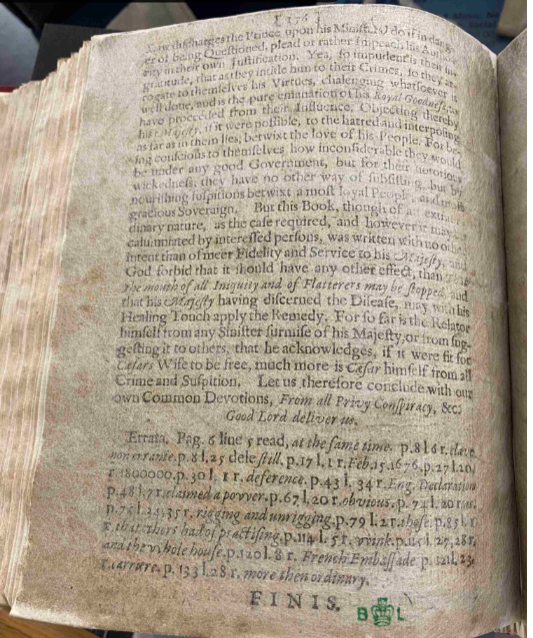 er of being Questioned, plead or rather impeach his Autho-
rity in their own Justification. Yea, so impudent is their in-
gratitude, that as they intitle him to their Crimes, so they ar-
rogate to themselves his Virtues, chalenging whatsoever is
well done, and is the pure emanation of his Royal Goodness, to
have proceeded from their Influence. Objecting thereby
his Majesty, if it were possible, to the hatred and interposing
as far as in them lies, betwixt the love of his People. For be-
ing conscious to themselves how inconsiderable they would
be under any good Government, but for their notorious
wickedness, they have no other way of subsisting, but by
nourishing suspitions betwixt a most loyal People, and most
gracious Soveraign. But this Book, though of an extraor-
dinary nature, as the case required, and however it may be
calumniated by interessed persons, was written with no other
intent than of meer Fidelity and Service to his Majesty, and
God forbid that it should have any other effect, than that
the mouth of all Iniquity and of Flatterers may be stopped, and
that his Majesty having discerned the Disease, may with his
Healing Touch apply the Remedy. For so far is the Relator
himself from any Sinister surmise of his Majesty, or from sug-
gesting it to others, that he acknowledges, if it were fit for
Cæsars Wife to be free, much more is Cæsar himself from all
Crime and Suspition. Let us therefore conclude with our
own Common Devotions, From all Privy Conspiracy, &c;
Good Lord deliver us.
Errata. Pag. 6 line 5 read, at the same time. p.8 l 6 r.
non errante. p.8 l,25 dele still. p.17 l, 1 r. Feb.15.1676, p.27 l.20,
r. 1800000. p.30 l, 1 r. deference. p.43 l, 34 r. Eng. Declaration
p.48 l.7 r. claimed a povver. p.67 l, 20 r. obvious. p.74 l, 20 r.
p.75 l.25, 35 r. rigging and unrigging, p.79 l. 2 r. those. p.85 l.
r. that others had of practising, p.114 l. 5 r. vvink. p.115 l. 27, 28 r.
and the vvhole house. p.120 l. 8 r. French Embassade. p. 121 l, 23,
p. 133 l. 28 r. more then ordinary.
FINIS.
B L